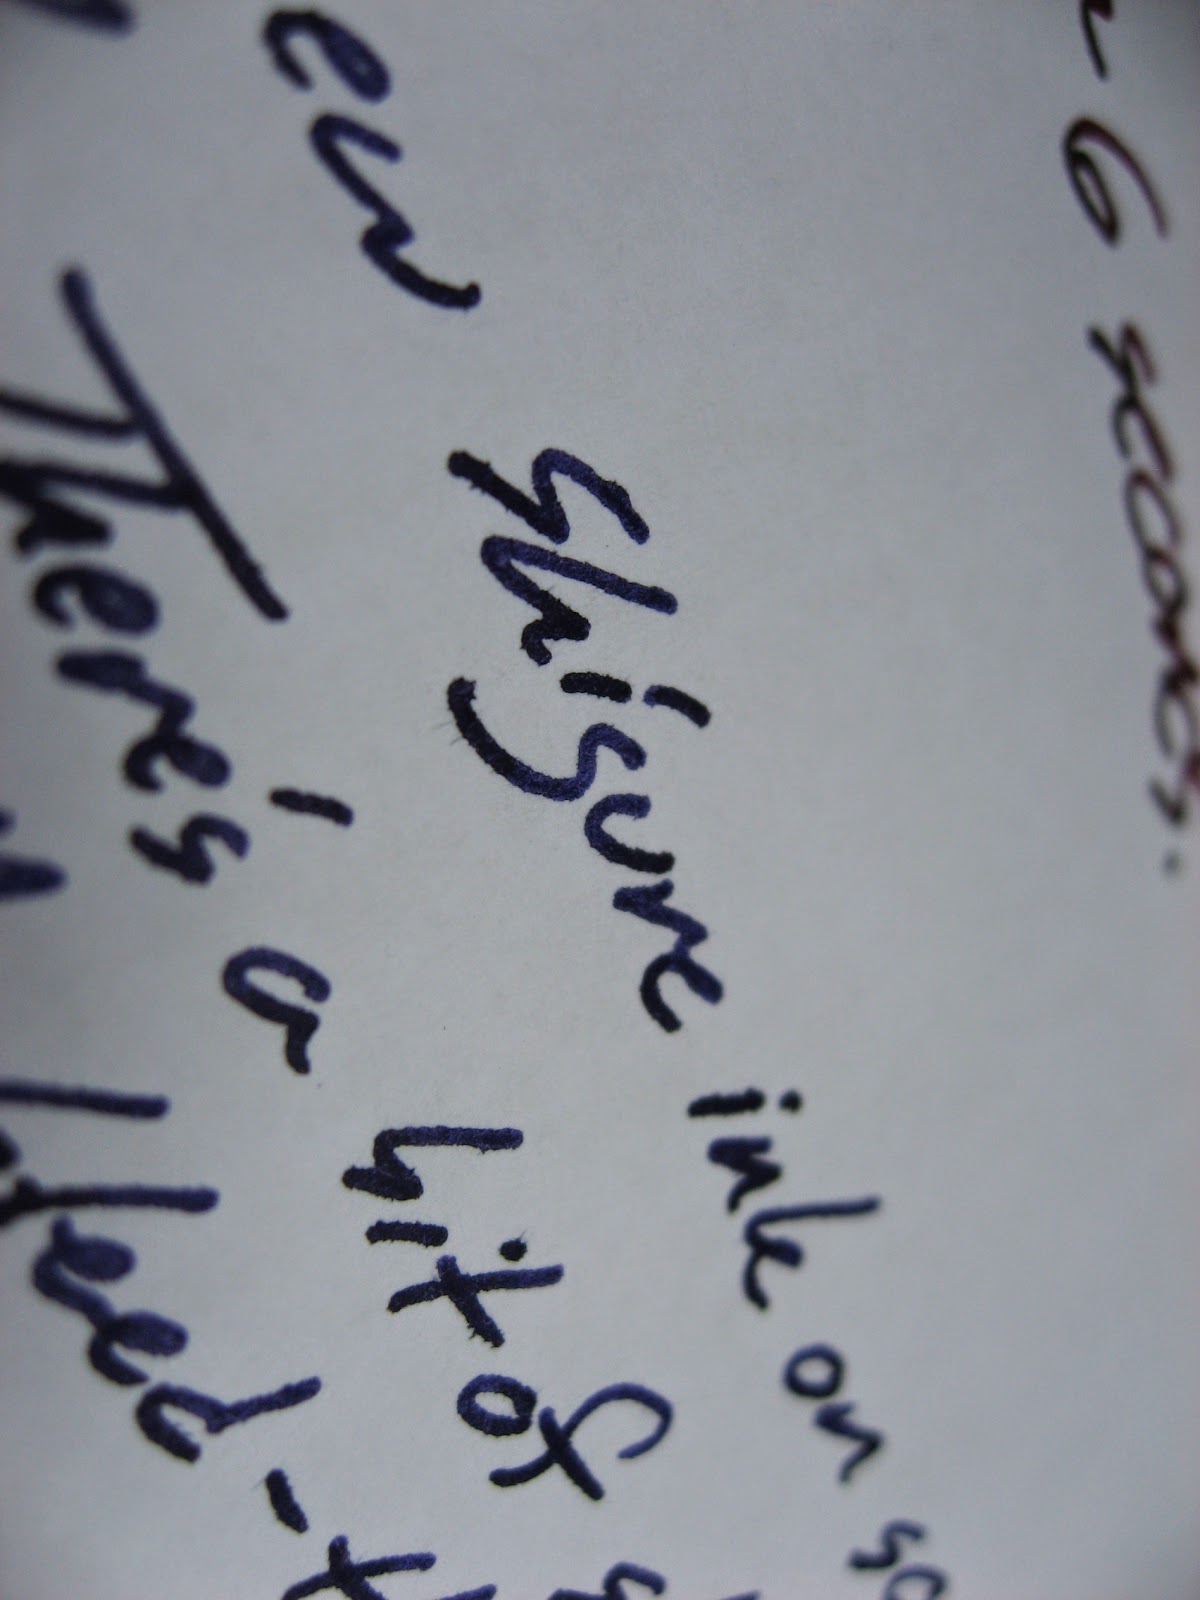 6 seconds.
ew Shigure ink on
There's a bit of
bleed-t